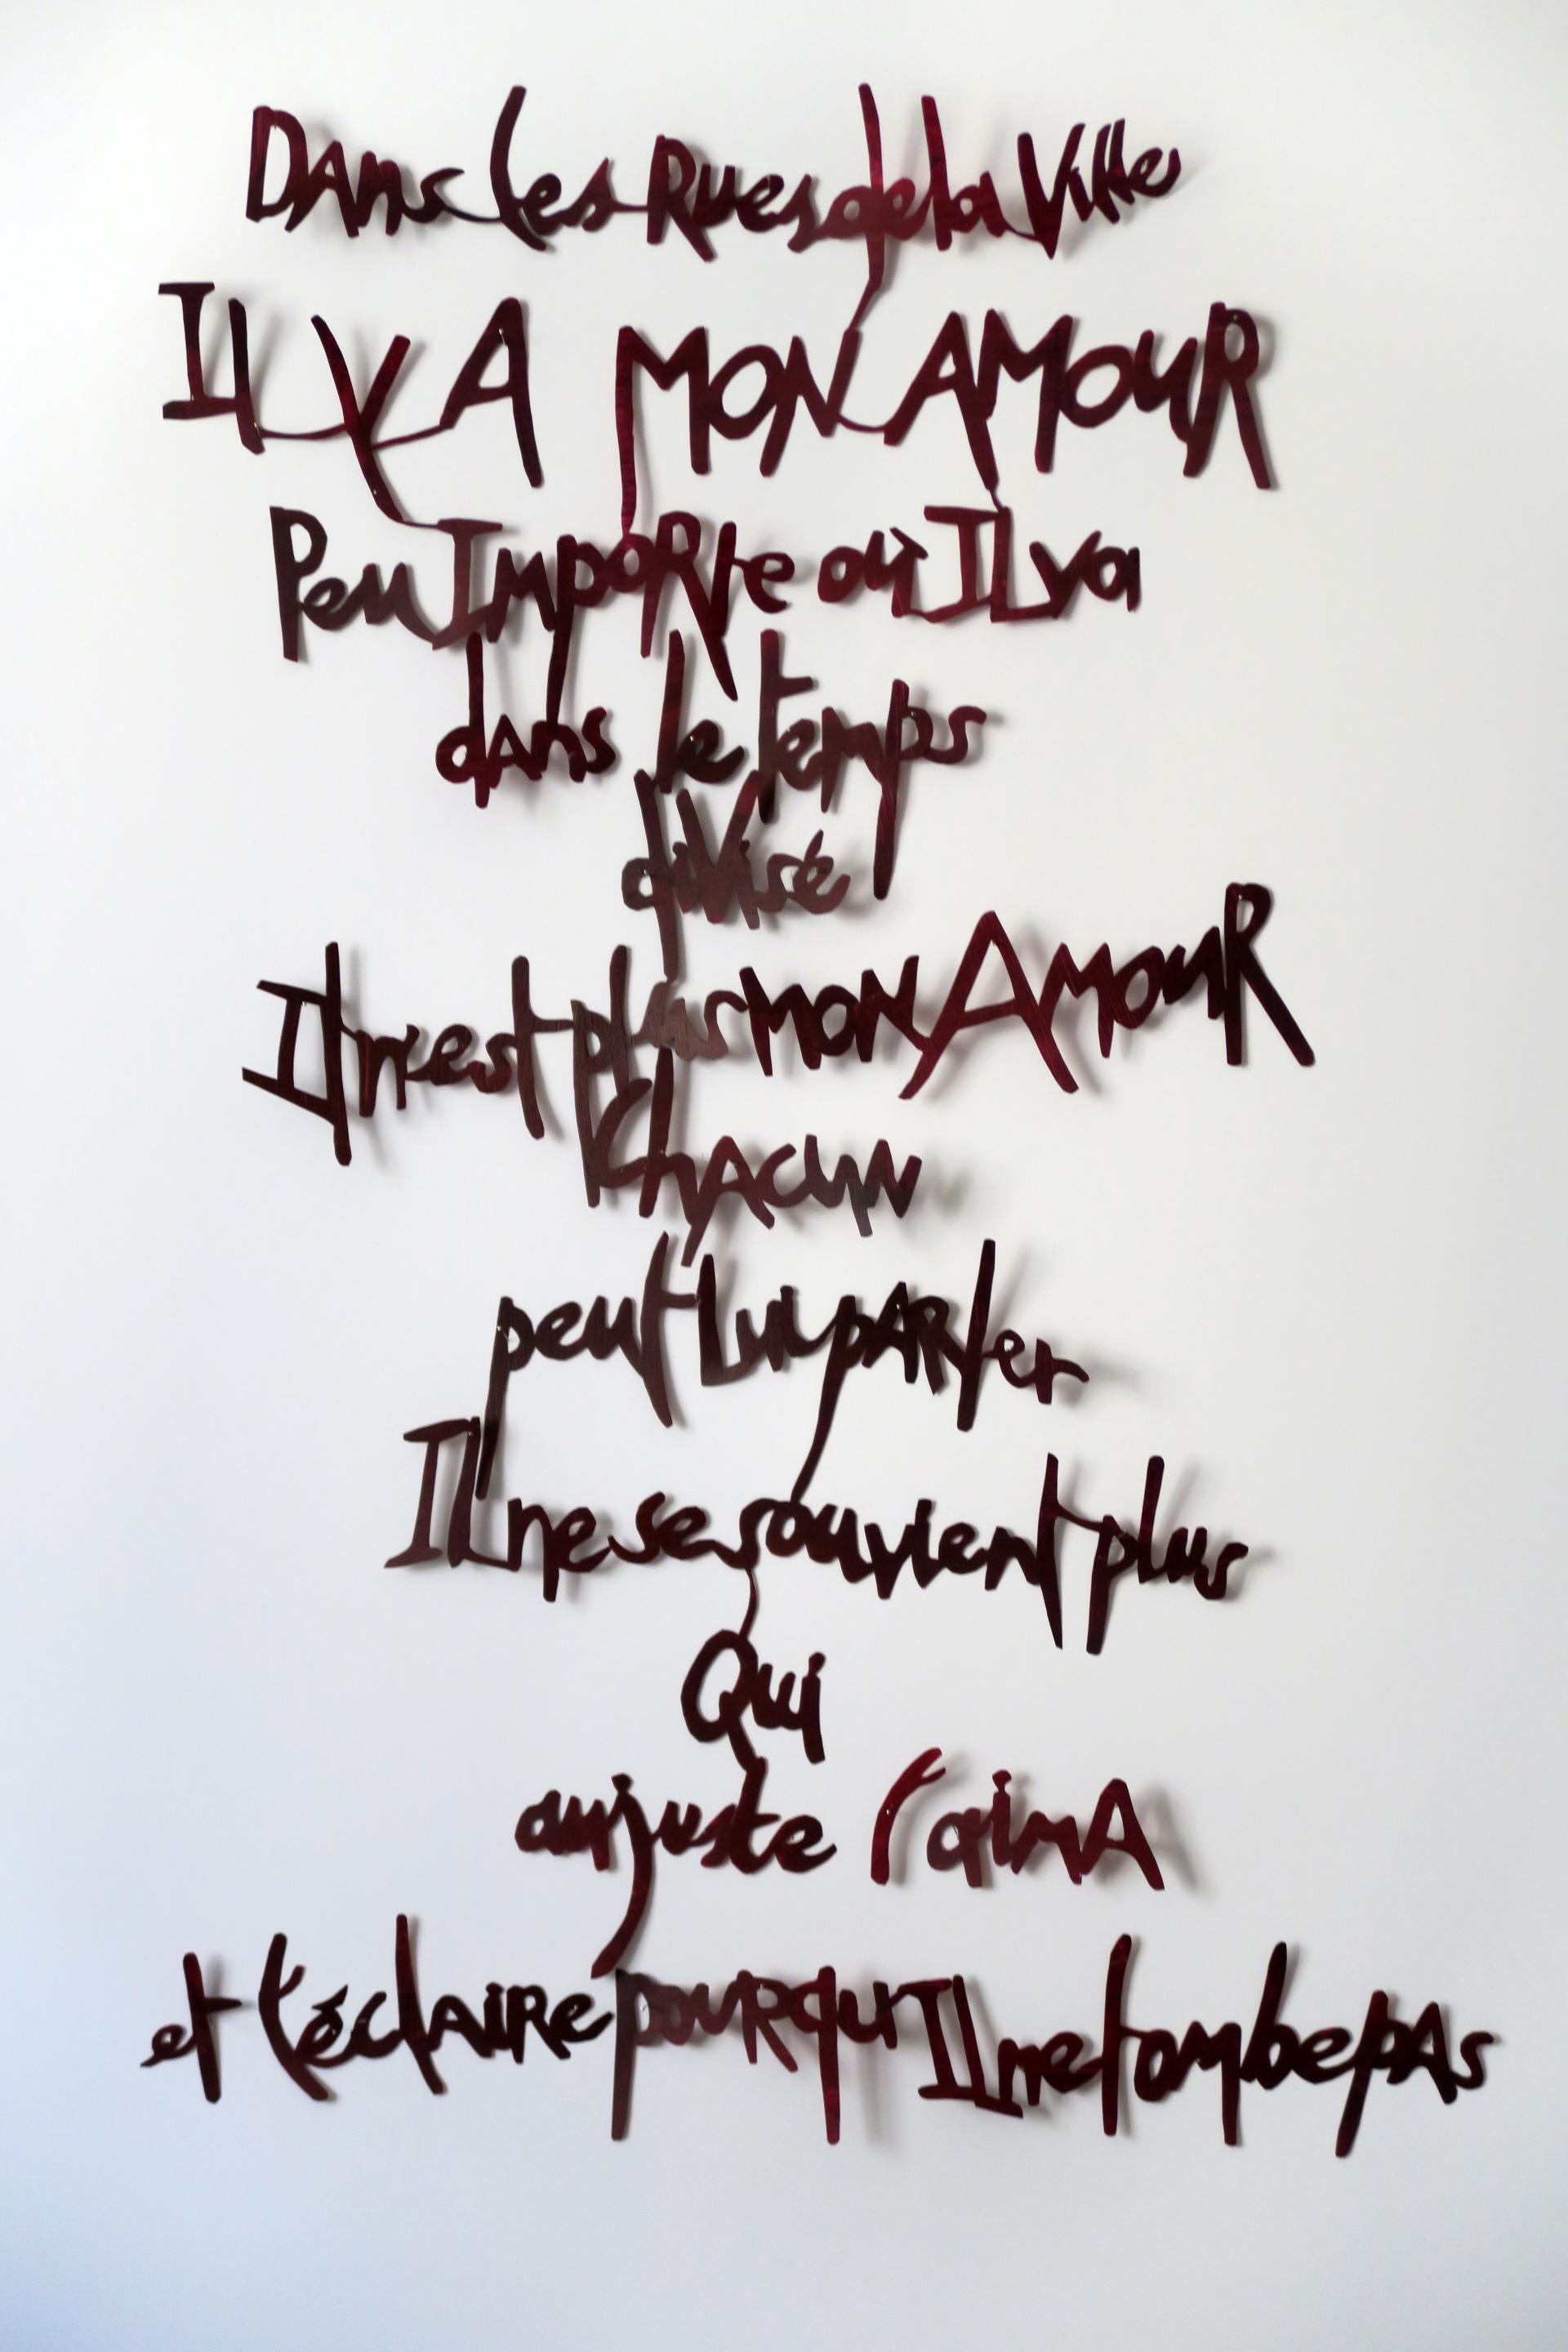 Dans les Rues de la Ville
Il y A MON AMOUR
Peu ImpORte où Il va
dans le temps
diVisé
Il n'est plus MON AMOUR
ChACUN
peut Lui pARler
Il ne se souvient plus
Qui
au juste l'aimA
et l'éclAiRe pouR qui Il ne tombe pAs